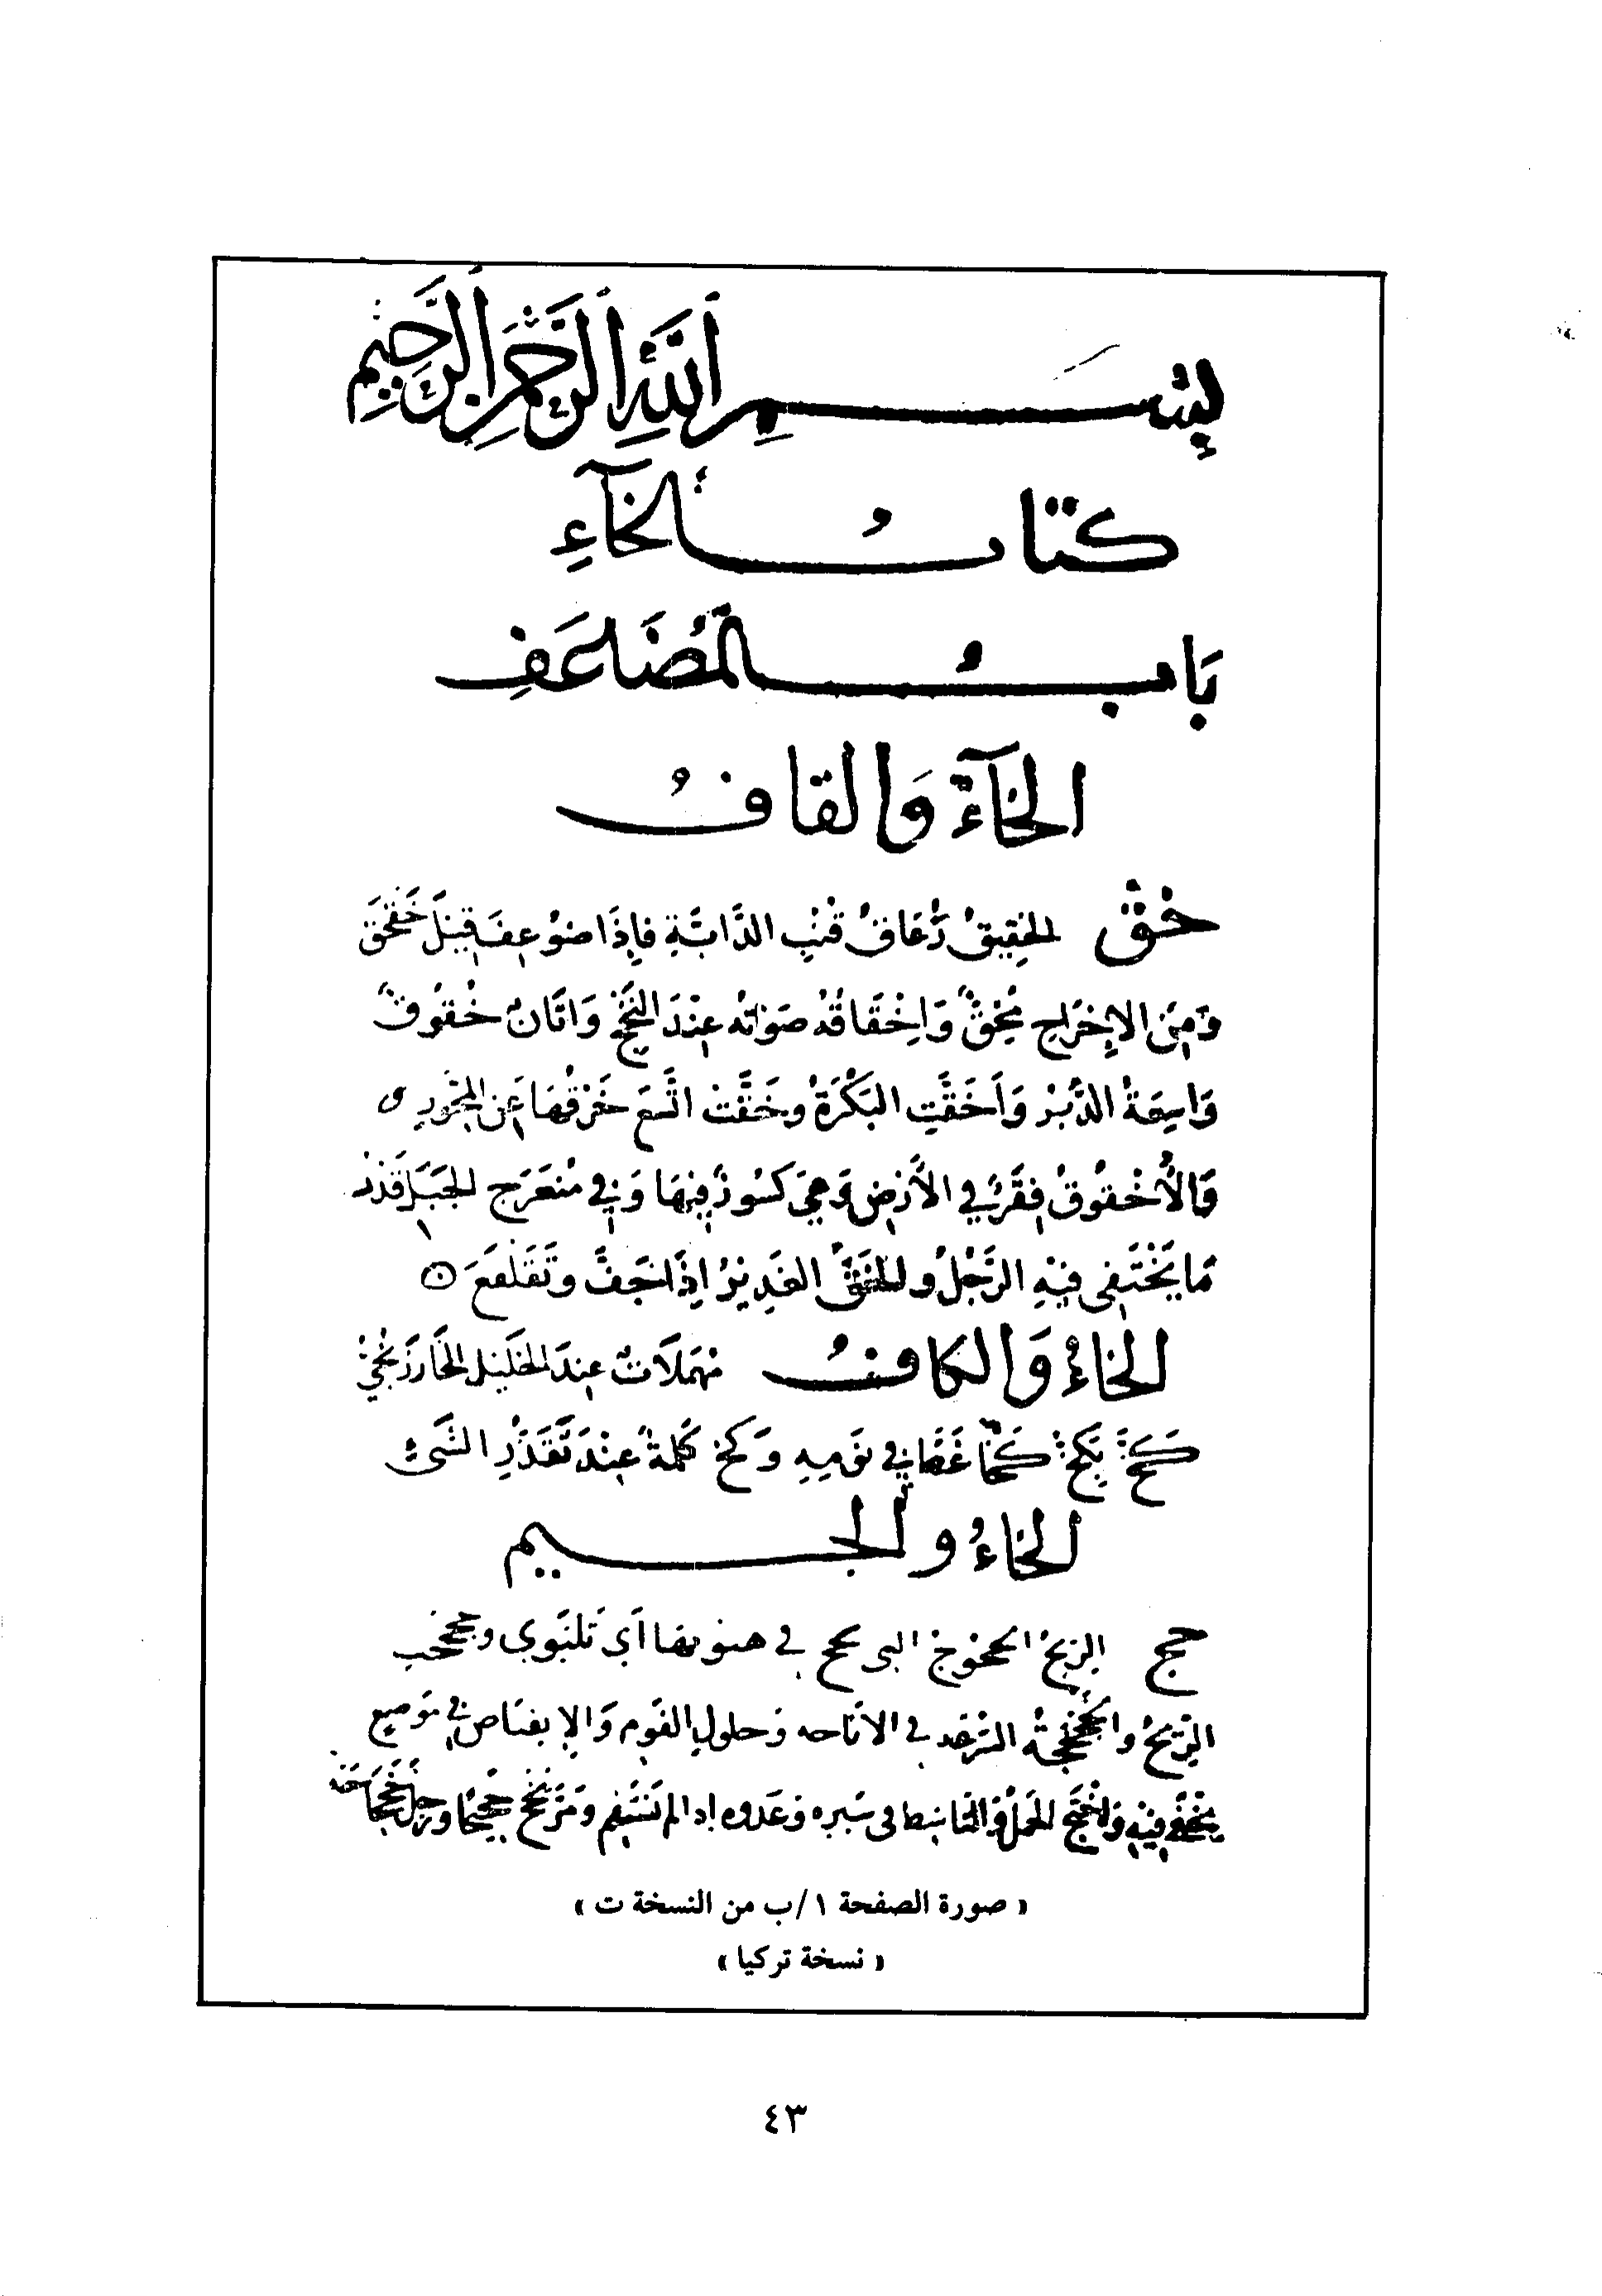 بِسْمِ اللَّهِ الرَّحْمَنِ الرَّحِيمِ
كتابُ الخَآءِ
بَابُ المُضَاعَفِ
الخَآءُ وَالقافُ
خق الخَقِيقُ زُعَاقُ قُنْبِ الدَّابَّةِ فَإِذَا ضُوْعِفَ قِيْلَ خَقْخَقَ
وَمِنَ الإِخْرَاجِ مُخِقٌّ وَإِخْقَاقُهُ صَوْتُهُ عِنْدَ النَّخْجِ وَاتَانٌ خَقُوْقٌ
وَاسِعَةُ الدُّبُرِ وَأَخَقَّتِ البَكْرَةُ وخَقَّتْ اتَّسَعَ خَرْقُهَا عَنِ المِحْوَرِ
وَالأُخْقُوْقُ فِقَرٌ في الأَرْضِ وَهِيَ كُسُورٌ فِيْهَا وَفِي مُنْعَرَجِ الجَبَلِ قَدْرُ
مَا يَخْتَفِي فِيْهِ الرَّجُلُ والخَقُّ الغَدِيْرُ إِذَا جَفَّ وتَقَلْفَعَ
الخاءُ وَالكافُ مُهْمَلَاتٌ عِندَ الخَلِيْلِ الخَارْزَنْجِيُّ
كَخَّ يَكِخُّ كَخّاً غَطَّ في نَوْمِهِ وَكِخْ كَلِمَةٌ عِنْدَ تَقَذُّرِ الشَّيْءِ
الخاءُ والجيم
خج الرِّيْحُ الخَجُوْجُ التي تخج في هبوبها أَي تَلْتَوِي وخجخجت
الرِّيْحُ والخَجْخَجَةُ في الاناخة وحلولِ القَوْمِ وَالإنقباض في مَوْضِعٍ
يُخْتَفَى فِيْهِ وَاخْتَجَّ الجَمَلُ في سَيْرِه وعَدوه إذا لم يَسْتَقِم ومَرَّ يَخُجُّ ورجل
« صورة الصفحة ١/ب من النسخة ت »
« نسخة تركيا »
٤٣